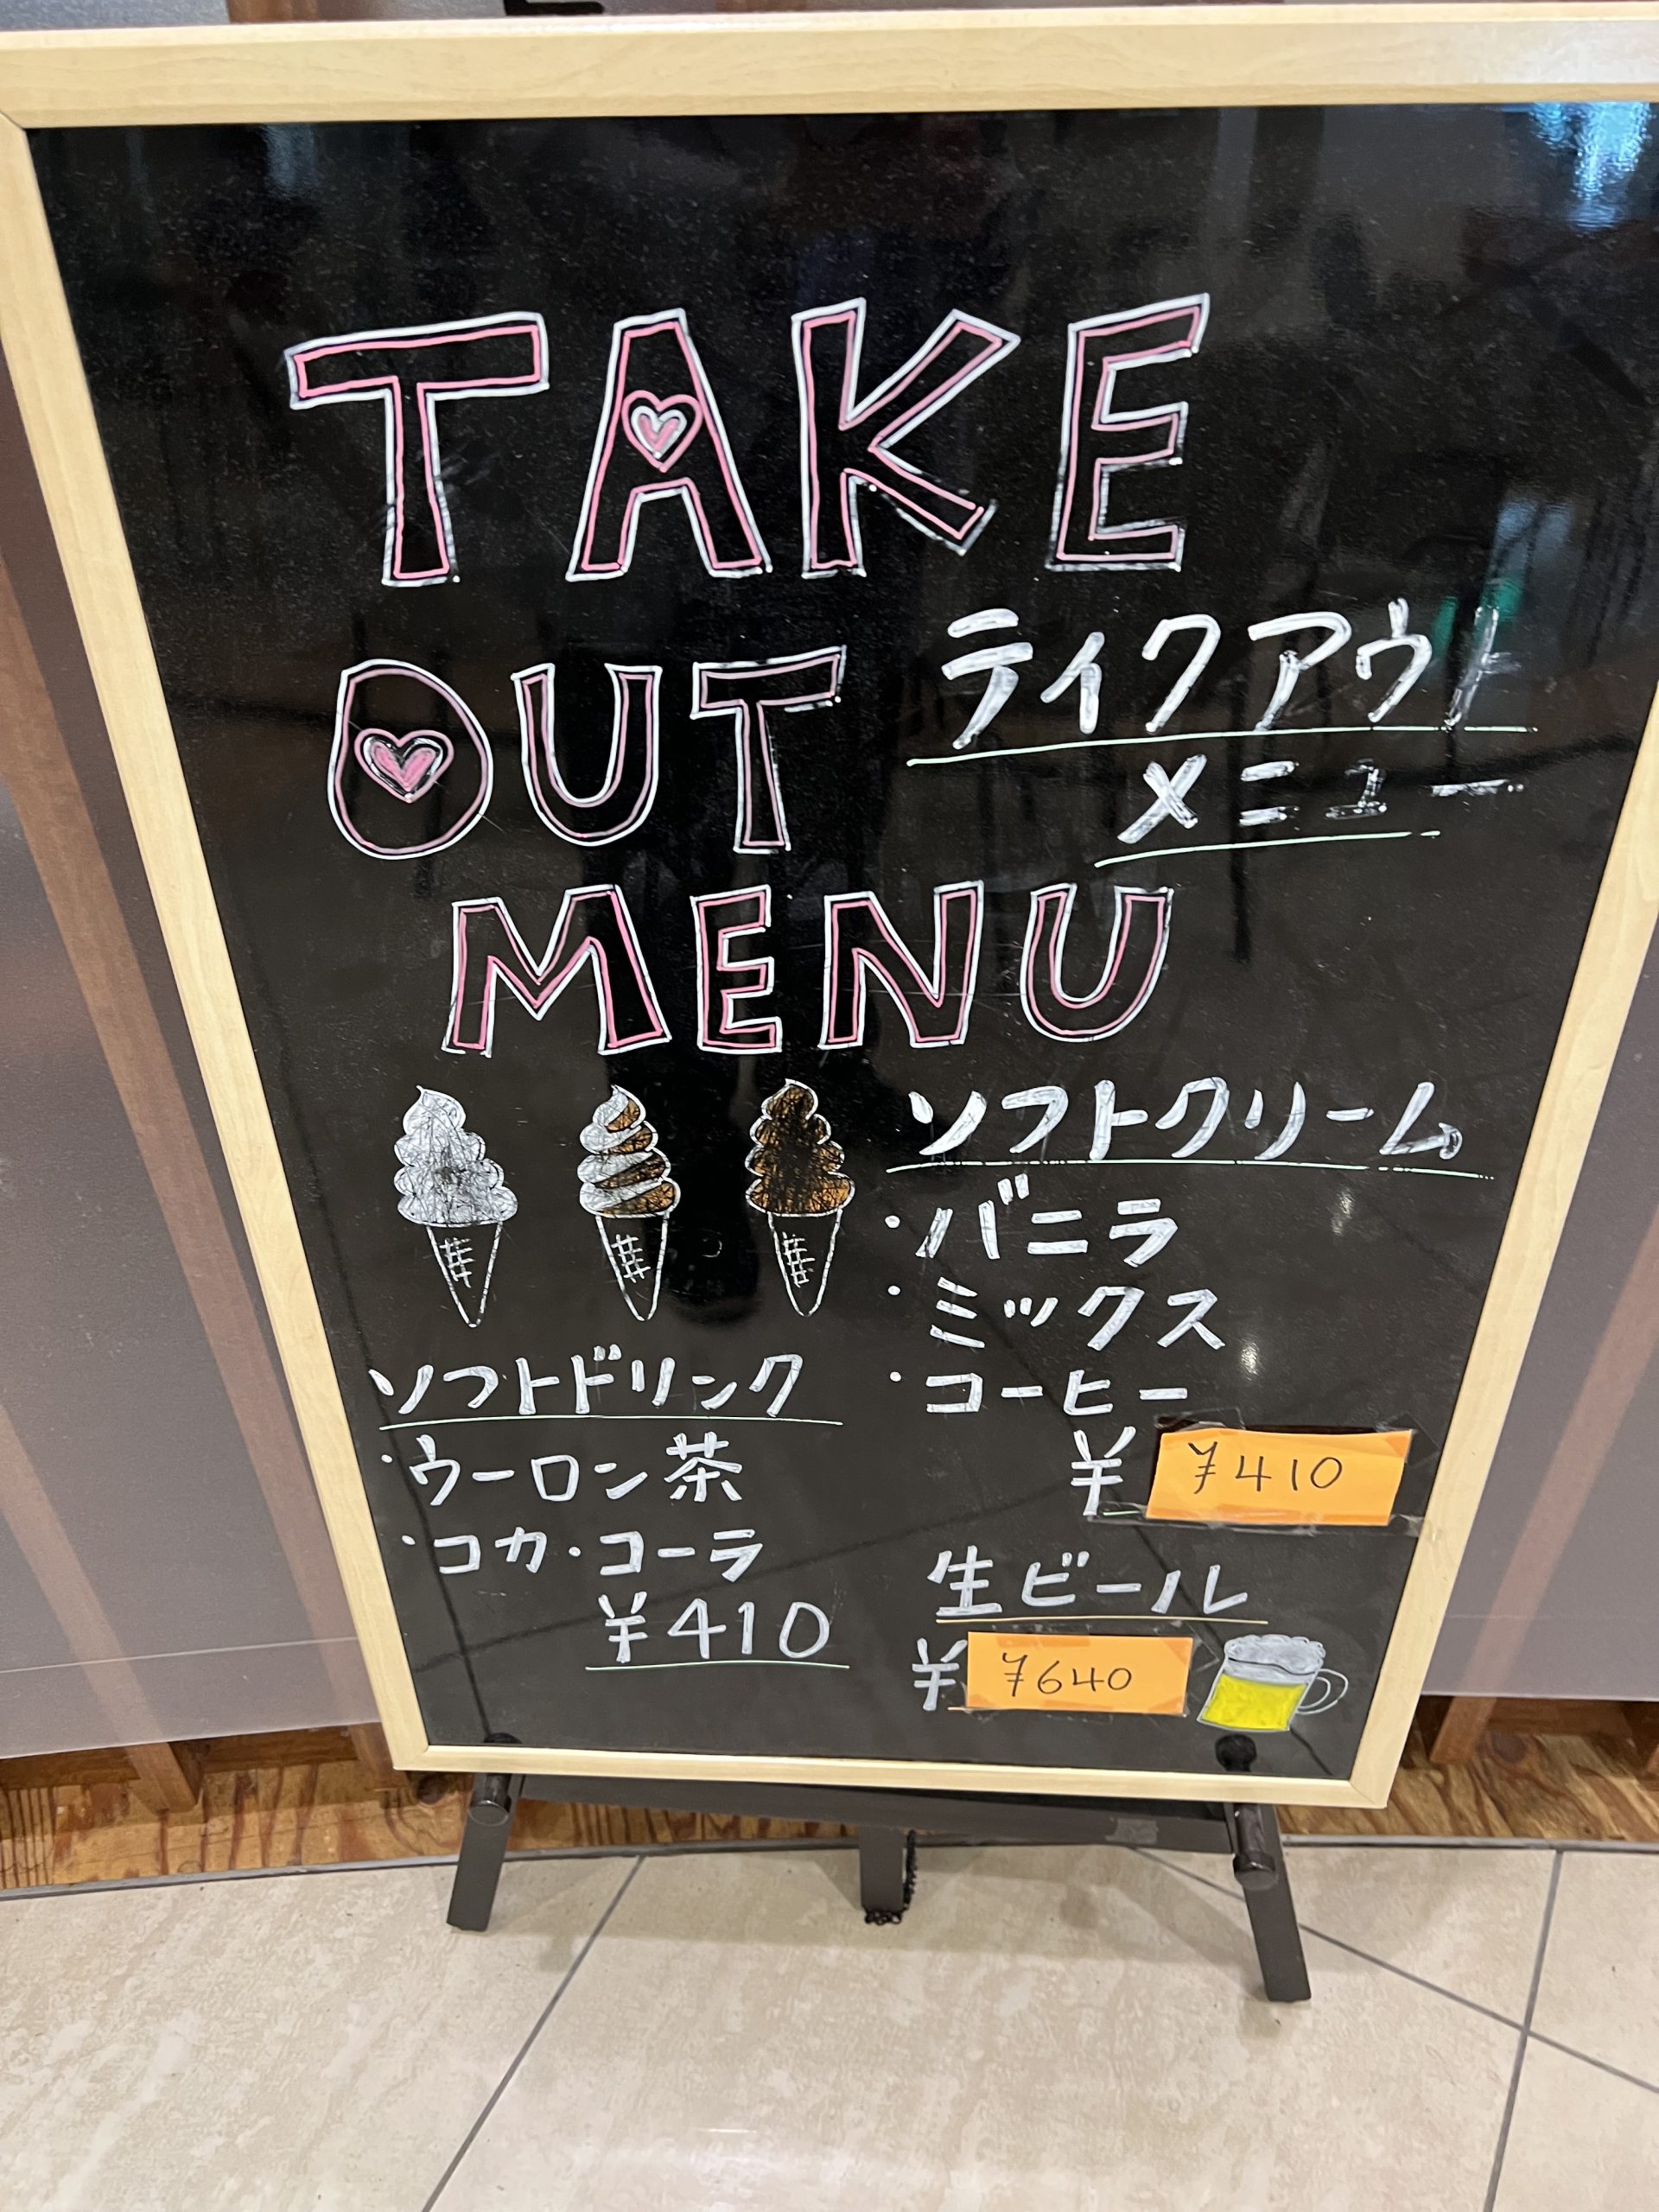 TAKE
OUT
テイクアウト
メニュー
MENU
ソフトクリーム
・バニラ
・ミックス
・コーヒー
¥ ¥410
ソフトドリンク
・ウーロン茶
・コカ・コーラ
¥410
生ビール
¥ ¥640